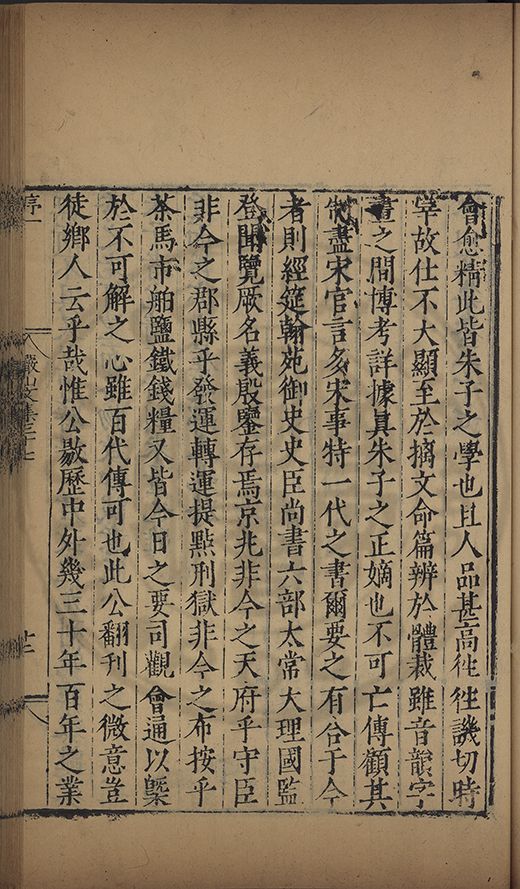 會愈精此皆朱子之學也且人品甚高徃徃譏切時
宰故仕不大顯至於摛文命篇辨於體裁雖音韻字
畫之間博考詳據真朱子之正嫡也不可亡傳顧其
制盡宋官言多宋事特一代之書爾要之有合于今
者則經筵翰苑御史史臣尚書六部太常大理國監
登聞覽厥名義殷鑒存焉京兆非今之天府乎守臣
非今之郡縣乎發運轉運提點刑獄非今之布按乎
茶馬市舶鹽鐵錢糧又皆今日之要司觀會通以槩
於不可解之心雖百代傳可也此公翻刊之微意豈
徒鄉人云乎哉惟公敭歷中外幾三十年百年之業
序一